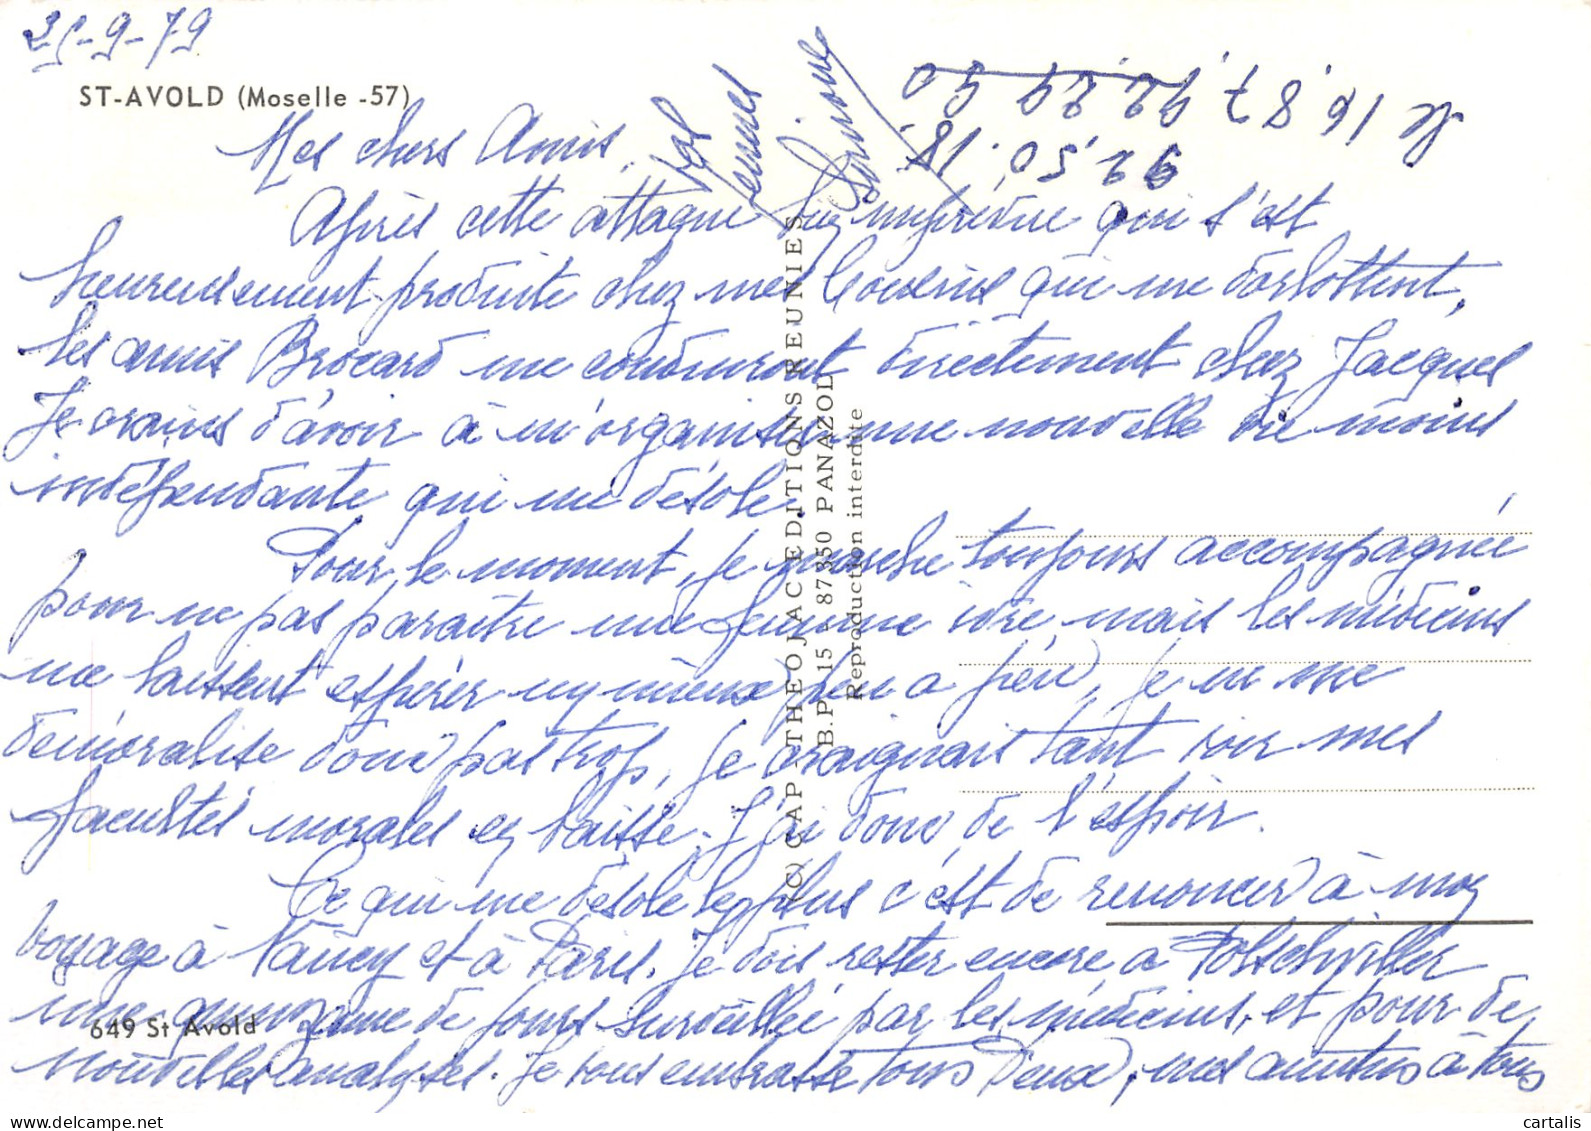 25-9-79
ST-AVOLD (Moselle -57)
Mes chers Amis,
Après cette attaque bien imprévue qui s'est
heureusement produite chez mes Cousins qui me dorlottent,
les amis Brocard me conduiront directement chez Jacques
Je crains d'avoir à m'organiser une nouvelle vie moins
indépendante qui me désole.
Pour le moment, je marche toujours accompagnée
pour ne pas paraître une femme ivre mais les médecins
me laissent espérer un mieux peu a peu, je ne me
démoralise donc pas trop, je craignais tant voir mes
facultés morales en baisse. J'ai donc de l'espoir.
Ce qui me désole le plus c'est de renoncer à mon
voyage à Nancy et à Paris. Je dois rester encore a
une quinzaine de jours surveillée par les médecins, et pour de
nouvelles analyses. Je vous embrasse tous deux, mes amitiés à tous
Simone
le 16.87.92.29.90
92.50.18.
(C) CAP THEOJAC EDITIONS REUNIES
B.P. 15 - 87350 PANAZOL
Reproduction interdite
649 St Avold
cartalis